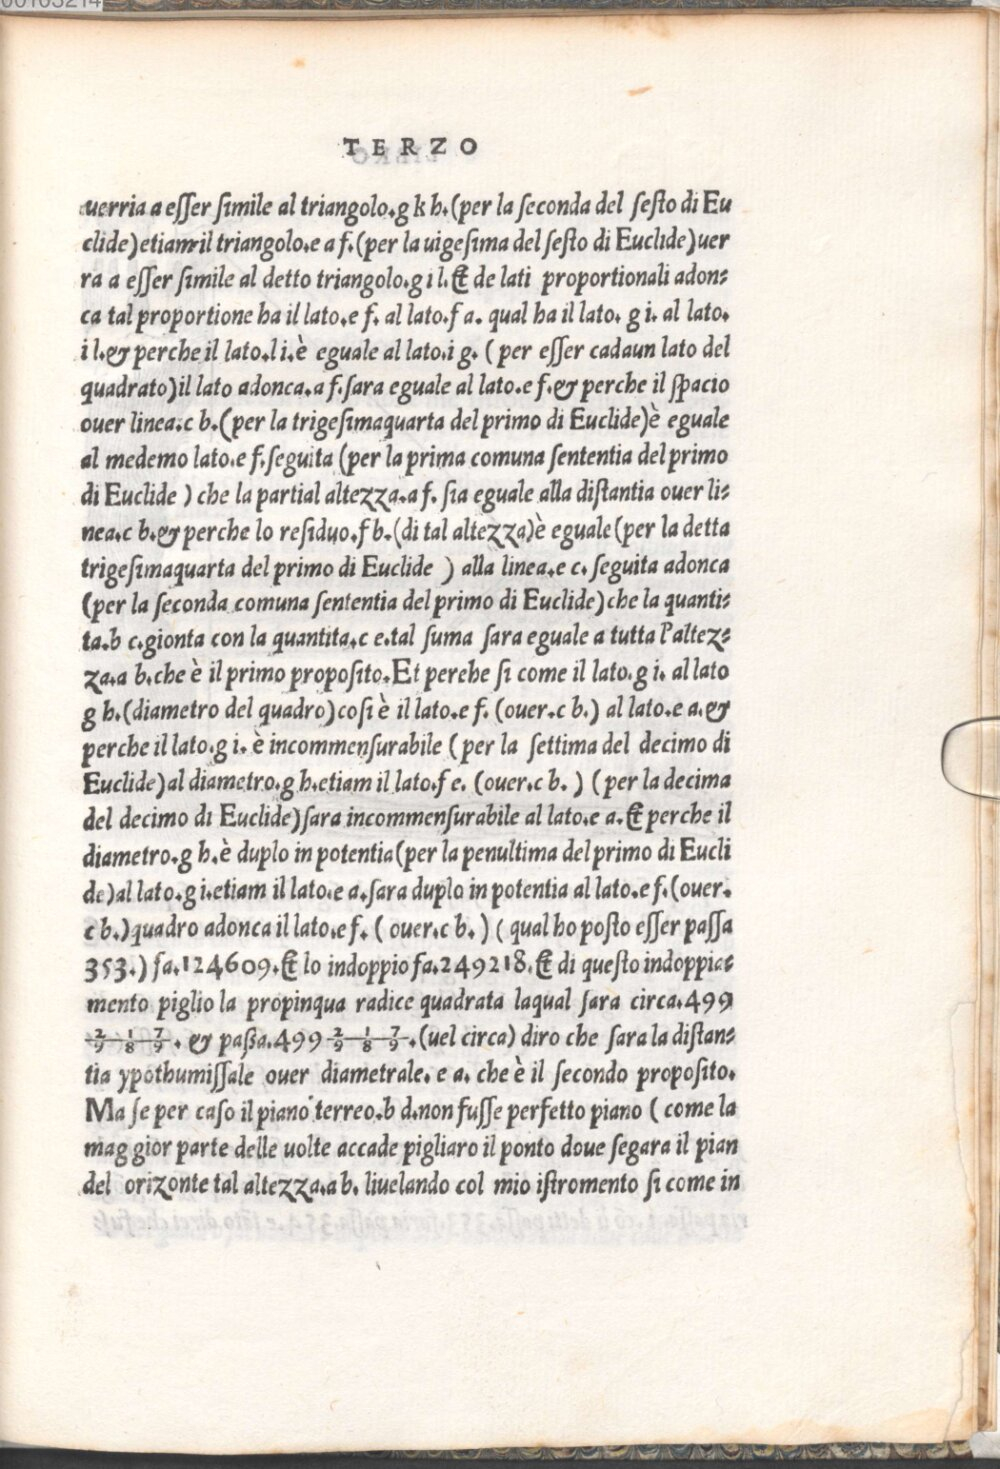 00103214
TERZO
uerria a eſſer ſimile al triangolo.g k h.(per la ſeconda del ſeſto di Eu
clide) etiam il triangolo.e a f.(per la uigeſima del ſeſto di Euclide) uer
ra a eſſer ſimile al detto triangolo.g i l.& de lati proportionali adon⸗
ca tal proportione ha il lato.e f. al lato.f a. qual ha il lato. g i. al lato.
i l.& perche il lato.l i.è eguale al lato.i g. ( per eſſer cadaun lato del
quadrato) il lato adonca.a f.ſara eguale al lato.e f.& perche il ſpacio
ouer linea.c b.(per la trigeſimaquarta del primo di Euclide)è eguale
al medemo lato.e f.ſeguita (per la prima comuna ſententia del primo
di Euclide ) che la partial altezza.a f. ſia eguale alla diſtantia ouer li⸗
nea.c b.& perche lo reſiduo.f b.(di tal altezza)è eguale (per la detta
trigeſimaquarta del primo di Euclide ) alla linea.e c. ſeguita adonca
(per la ſeconda comuna ſententia del primo di Euclide) che la quanti⸗
ta.b c.gionta con la quantita.c e.tal ſuma ſara eguale a tutta l'altez⸗
za.a b.che è il primo propoſito.Et perche ſi come il lato.g i. al lato
g h.(diametro del quadro) coſi è il lato.e f. (ouer.c b.) al lato.e a.&
perche il lato.g i. è incommenſurabile ( per la ſettima del decimo di
Euclide) al diametro.g h.etiam il lato.f e. (ouer.c b. ) ( per la decima
del decimo di Euclide) ſara incommenſurabile al lato.e a.& perche il
diametro.g h.è duplo in potentia (per la penultima del primo di Eucli
de) al lato.g i.etiam il lato.e a.ſara duplo in potentia al lato.e f.(ouer.
c b.) quadro adonca il lato.e f. ( ouer.c b. ) ( qual ho poſto eſſer paſſa
353.) fa.124609.& lo indoppio fa.249218.& di queſto indoppia⸗
mento piglio la propinqua radice quadrata laqual ſara circa.499
2/9 1/8 7/9 . & paßa.499 2/9 1/8 7/9 .(uel circa) diro che ſara la diſtan⸗
tia ypothumiſſale ouer diametrale. e a. che è il ſecondo propoſito.
Ma ſe per caſo il piano terreo.b d.non fuſſe perfetto piano ( come la
mag gior parte delle uolte accade pigliaro il ponto doue ſegara il pian
del orizonte tal altezza.a b. liuelando col mio iſtromento ſi come in